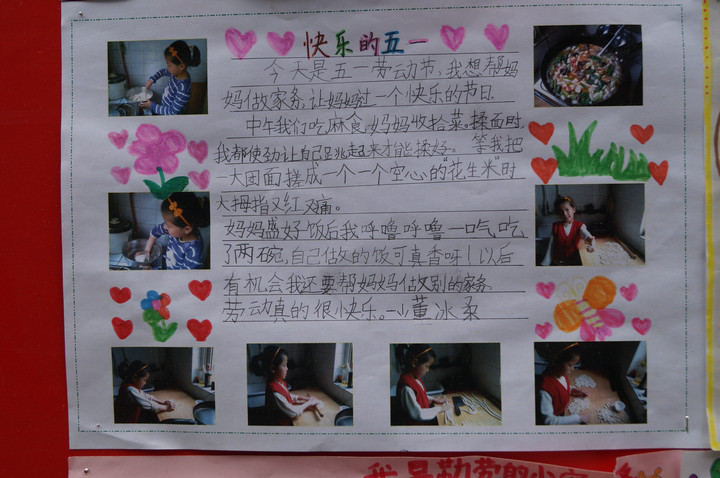 快乐的五一
今天是五一劳动节,我想帮妈
妈做家务,让妈妈过一个快乐的节日.
中午我们吃麻食,妈妈收拾菜。揉面时,
我都使劲让自己跳起来才能揉好。等我把
一大团面搓成一个一个空心的"花生米"时
大拇指又红又痛。
妈妈盛好饭后我呼噜呼噜一口气吃
了两碗,自己做的饭可真香呀!以后
有机会我还要帮妈妈做别的家务
劳动真的很快乐。一小董冰柔
我是勤劳的小